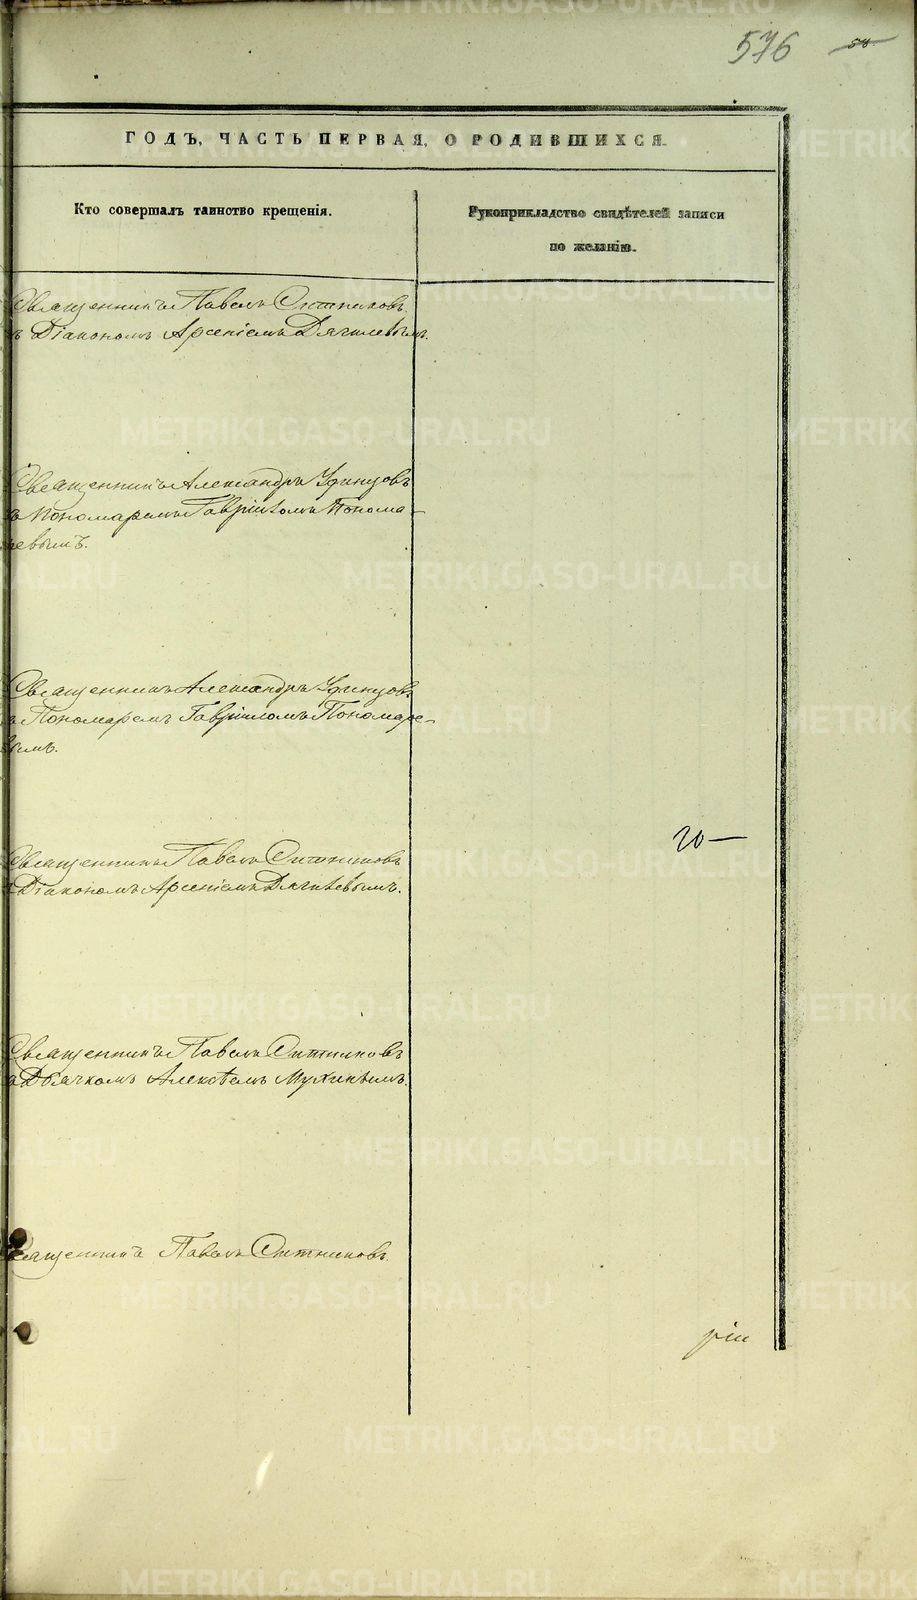 576 58
ГОДЪ, ЧАСТЬ ПЕРВАЯ, О РОДИВШИХСЯ.
Кто совершалъ таинство крещенія.
Рукоприкладство свидѣтелей записи
по желанію.
Священникъ Павелъ Ситниковъ
съ Діакономъ Арсеніемъ Дягилевымъ.
Священникъ Александръ Удинцовъ
съ Пономаремъ Гавріиломъ Понома-
ревымъ.
Священникъ Александръ Удинцовъ
съ Пономаремъ Гавріиломъ Пономаре-
вымъ.
20—
Священникъ Павелъ Ситниковъ
съ Діакономъ Арсеніемъ Дягилевымъ.
Священникъ Павелъ Ситниковъ
съ Дьячкомъ Алексѣемъ Мухинымъ.
Священникъ Павелъ Ситниковъ.
рій
METRIKI.GASO-URAL.RU